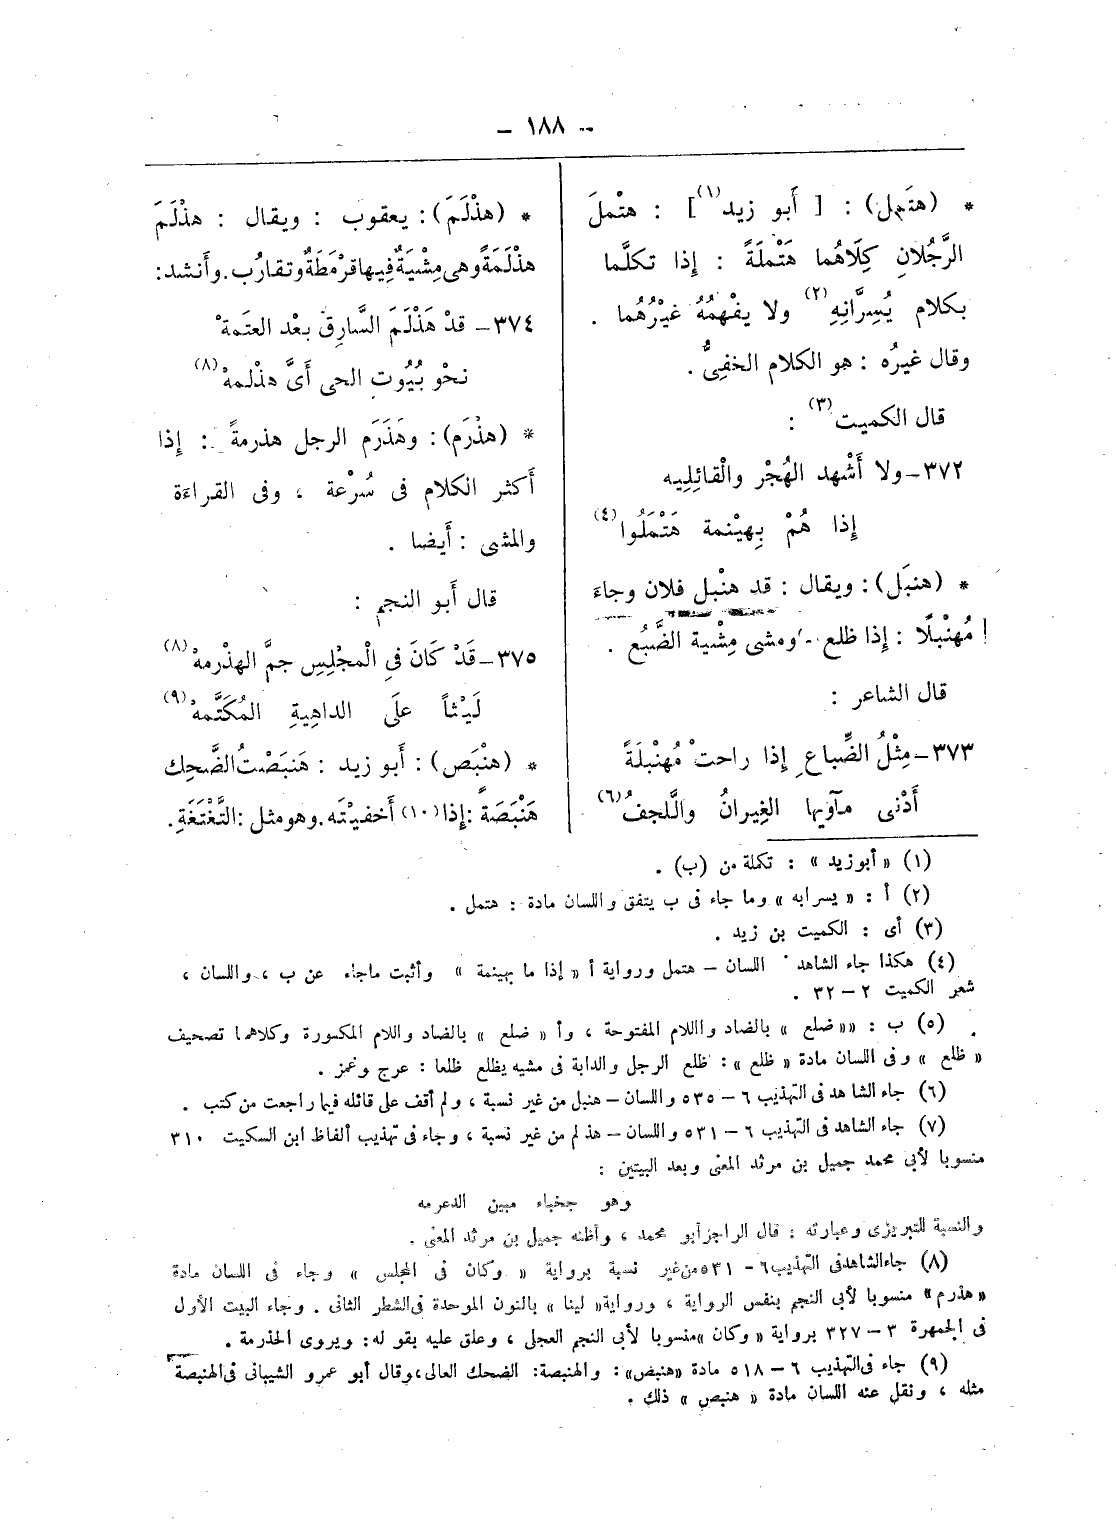 – ١٨٨ –
* (هتمل) : [ أَبو زيد(١) ] : هتْملَ
الرَّجُلانِ كِلَاهُما هَتْملَةً : إِذا تكلَّما
بكلام يُسِرَّانِهِ(٢) ولا يفْهمُهُ غيْرُهُما .
وقال غيرُه : هو الكلام الخفِىُّ .
قال الكميت(٣) :
٣٧٢ – ولا أَشْهد الهُجْر والْقائِلِيه
إِذا هُمْ بِهيْنمة هَتْمَلُوا(٤)
* (هنبَل) : ويقال : قد هنْبل فلان وجاءَ
مُهنْبلًا : إِذا ظلع ومشى مِشْية الضَّبُع .
قال الشاعر :
٣٧٣ – مِثْلُ الضِّباعِ إِذا راحتْ مُهنْبلَةً
أَدْنى مآوِيها الغِيرانُ واللَّجفُ(٦)
* (هذْلَمَ) : يعقوب : ويقال : هذْلَمَ
هذْلَمَةً وهى مِشْيَةٌ فِيها قرْمَطَةٌ وتقارُب . وأَنشد :
٣٧٤ – قدْ هَذْلَمَ السَّارِق بعْد العتَمةْ
نحْو بُيُوتِ الحى أَىَّ هذْلمهْ(٨)
* (هذْرَم) : وهَذَرَم الرجل هذرمةً : إِذا
أَكثر الكلام فى سُرْعة ، وفى القراءَة
والمشى : أَيضا .
قال أَبو النجم :
٣٧٥ – قَدْ كَانَ فى الْمجْلِسِ جمَّ الهذْرمهْ(٨)
لَيْثاً علَى الداهِيةِ المُكَتَّمهْ(٩)
* (هنْبَص) : أَبو زيد : هَنبَصْتُ الضَّحِك
هَنْبَصَةً : إِذا(١٠) أَخفيْتَه . وهو مثل : التَّغْتَغَةِ .
(١) « أبو زيد » : تكملة من (ب) .
(٢) أ : « يسرابه » وما جاء فى ب يتفق واللسان مادة : هتمل .
(٣) أى : الكميت بن زيد .
(٤) هكذا جاء الشاهد اللسان – هتمل ورواية أ « إذا ما بهينمة » وأثبت ماجاء عن ب ، واللسان ،
شعر الكميت ٢ – ٣٢ .
(٥) ب : «« ضلع » بالضاد واللام المفتوحة ، وأ « ضلع » بالضاد واللام المكسورة وكلاهما تصحيف
« ظلع » وفى اللسان مادة « ظلع » : ظلع الرجل والدابة فى مشيه يظلع ظلعا : عرج وغمز .
(٦) جاء الشاهد فى التهذيب ٦ – ٥٣٥ واللسان – هنبل من غير نسبة ، ولم أقف على قائله فيما راجعت من كتب .
(٧) جاء الشاهد فى التهذيب ٦ – ٥٣١ واللسان – هذلم من غير نسبة ، وجاء فى تهذيب ألفاظ ابن السكيت ٣١٠
منسوبا لأبى محمد جميل بن مرثد المعنى وبعد البيتين :
وهو جخباء مبين الدعرمه
والنسبة للتبريزى وعبارته : قال الراجز أبو محمد ، وأظنه جميل بن مرثد المعنى .
(٨) جاء الشاهد فى التهذيب ٦ – ٥٣١ من غير نسبة برواية « وكان فى المجلس » وجاء فى اللسان مادة
« هذرم » منسوبا لأبى النجم بنفس الرواية ، ورواية « لينا » بالنون الموحدة فى الشطر الثانى . وجاء البيت الأول
فى الجمهرة ٣ – ٣٢٧ برواية « وكان » منسوبا لأبى النجم العجلى ، وعلق عليه بقوله : ويروى الخذرمة .
(٩) جاء فى التهذيب ٦ – ٥١٨ مادة « هنبض » : والهنبصة : الضحك العالى ، وقال أبو عمرو الشيبانى فى الهنبصة
مثله ، ونقل عنه اللسان مادة « هنبص » ذلك .